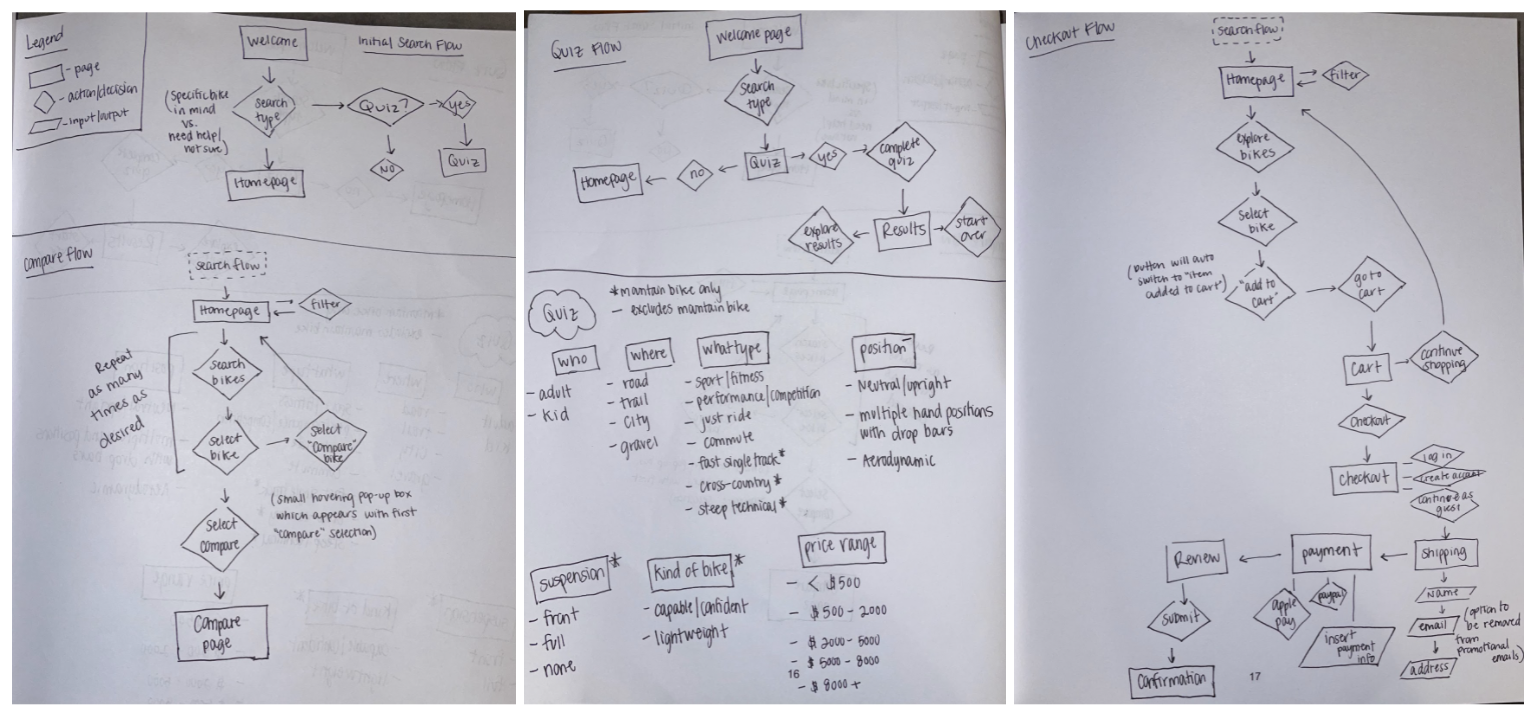 Legend
- page
- action/decision
- input/output
Welcome
Initial Search Flow
(Specific bike
in mind
vs.
need help/
not sure)
search
type
Quiz?
yes
NO
Quiz
Homepage
Compare Flow
search flow
Homepage
filter
Repeat
as many
times as
desired
search
bikes
select
bike
select
"compare"
bike
(small hovering pop-up box
which appears with first
"compare" selection)
select
compare
Compare
page
Quiz Flow
Welcome page
search
type
Homepage
no
Quiz
yes
complete
quiz
explore
results
Results
start
over
Quiz
*mantain bike only
- excludes mantain bike
who
- adult
- kid
where
- road
- trail
- city
- gravel
what type
- sport/fitness
- performance/competition
- just ride
- commute
- fast single track*
- cross-country*
- steep technical*
position-
- Neutral/upright
- multiple hand positions
with drop bars
- Aerodynamic
suspension*
- front
- full
- none
kind of bike*
- capable/confident
- lightweight
price range
- < $500
- $500 - 2000
- $2000 - 5000
- $5000 - 8000
- $8000 +
16
Checkout Flow
search flow
Homepage
filter
explore
bikes
select
bike
(button will auto
switch to "item
added to cart")
"add to
cart"
go to
cart
cart
continue
shopping
checkout
checkout
log in
create account
continue as
guest
Review
payment
shipping
submit
apple
pay
paypal
insert
payment
info
name
email
address
(option to
be removed
from
promotional
emails)
confirmation
17